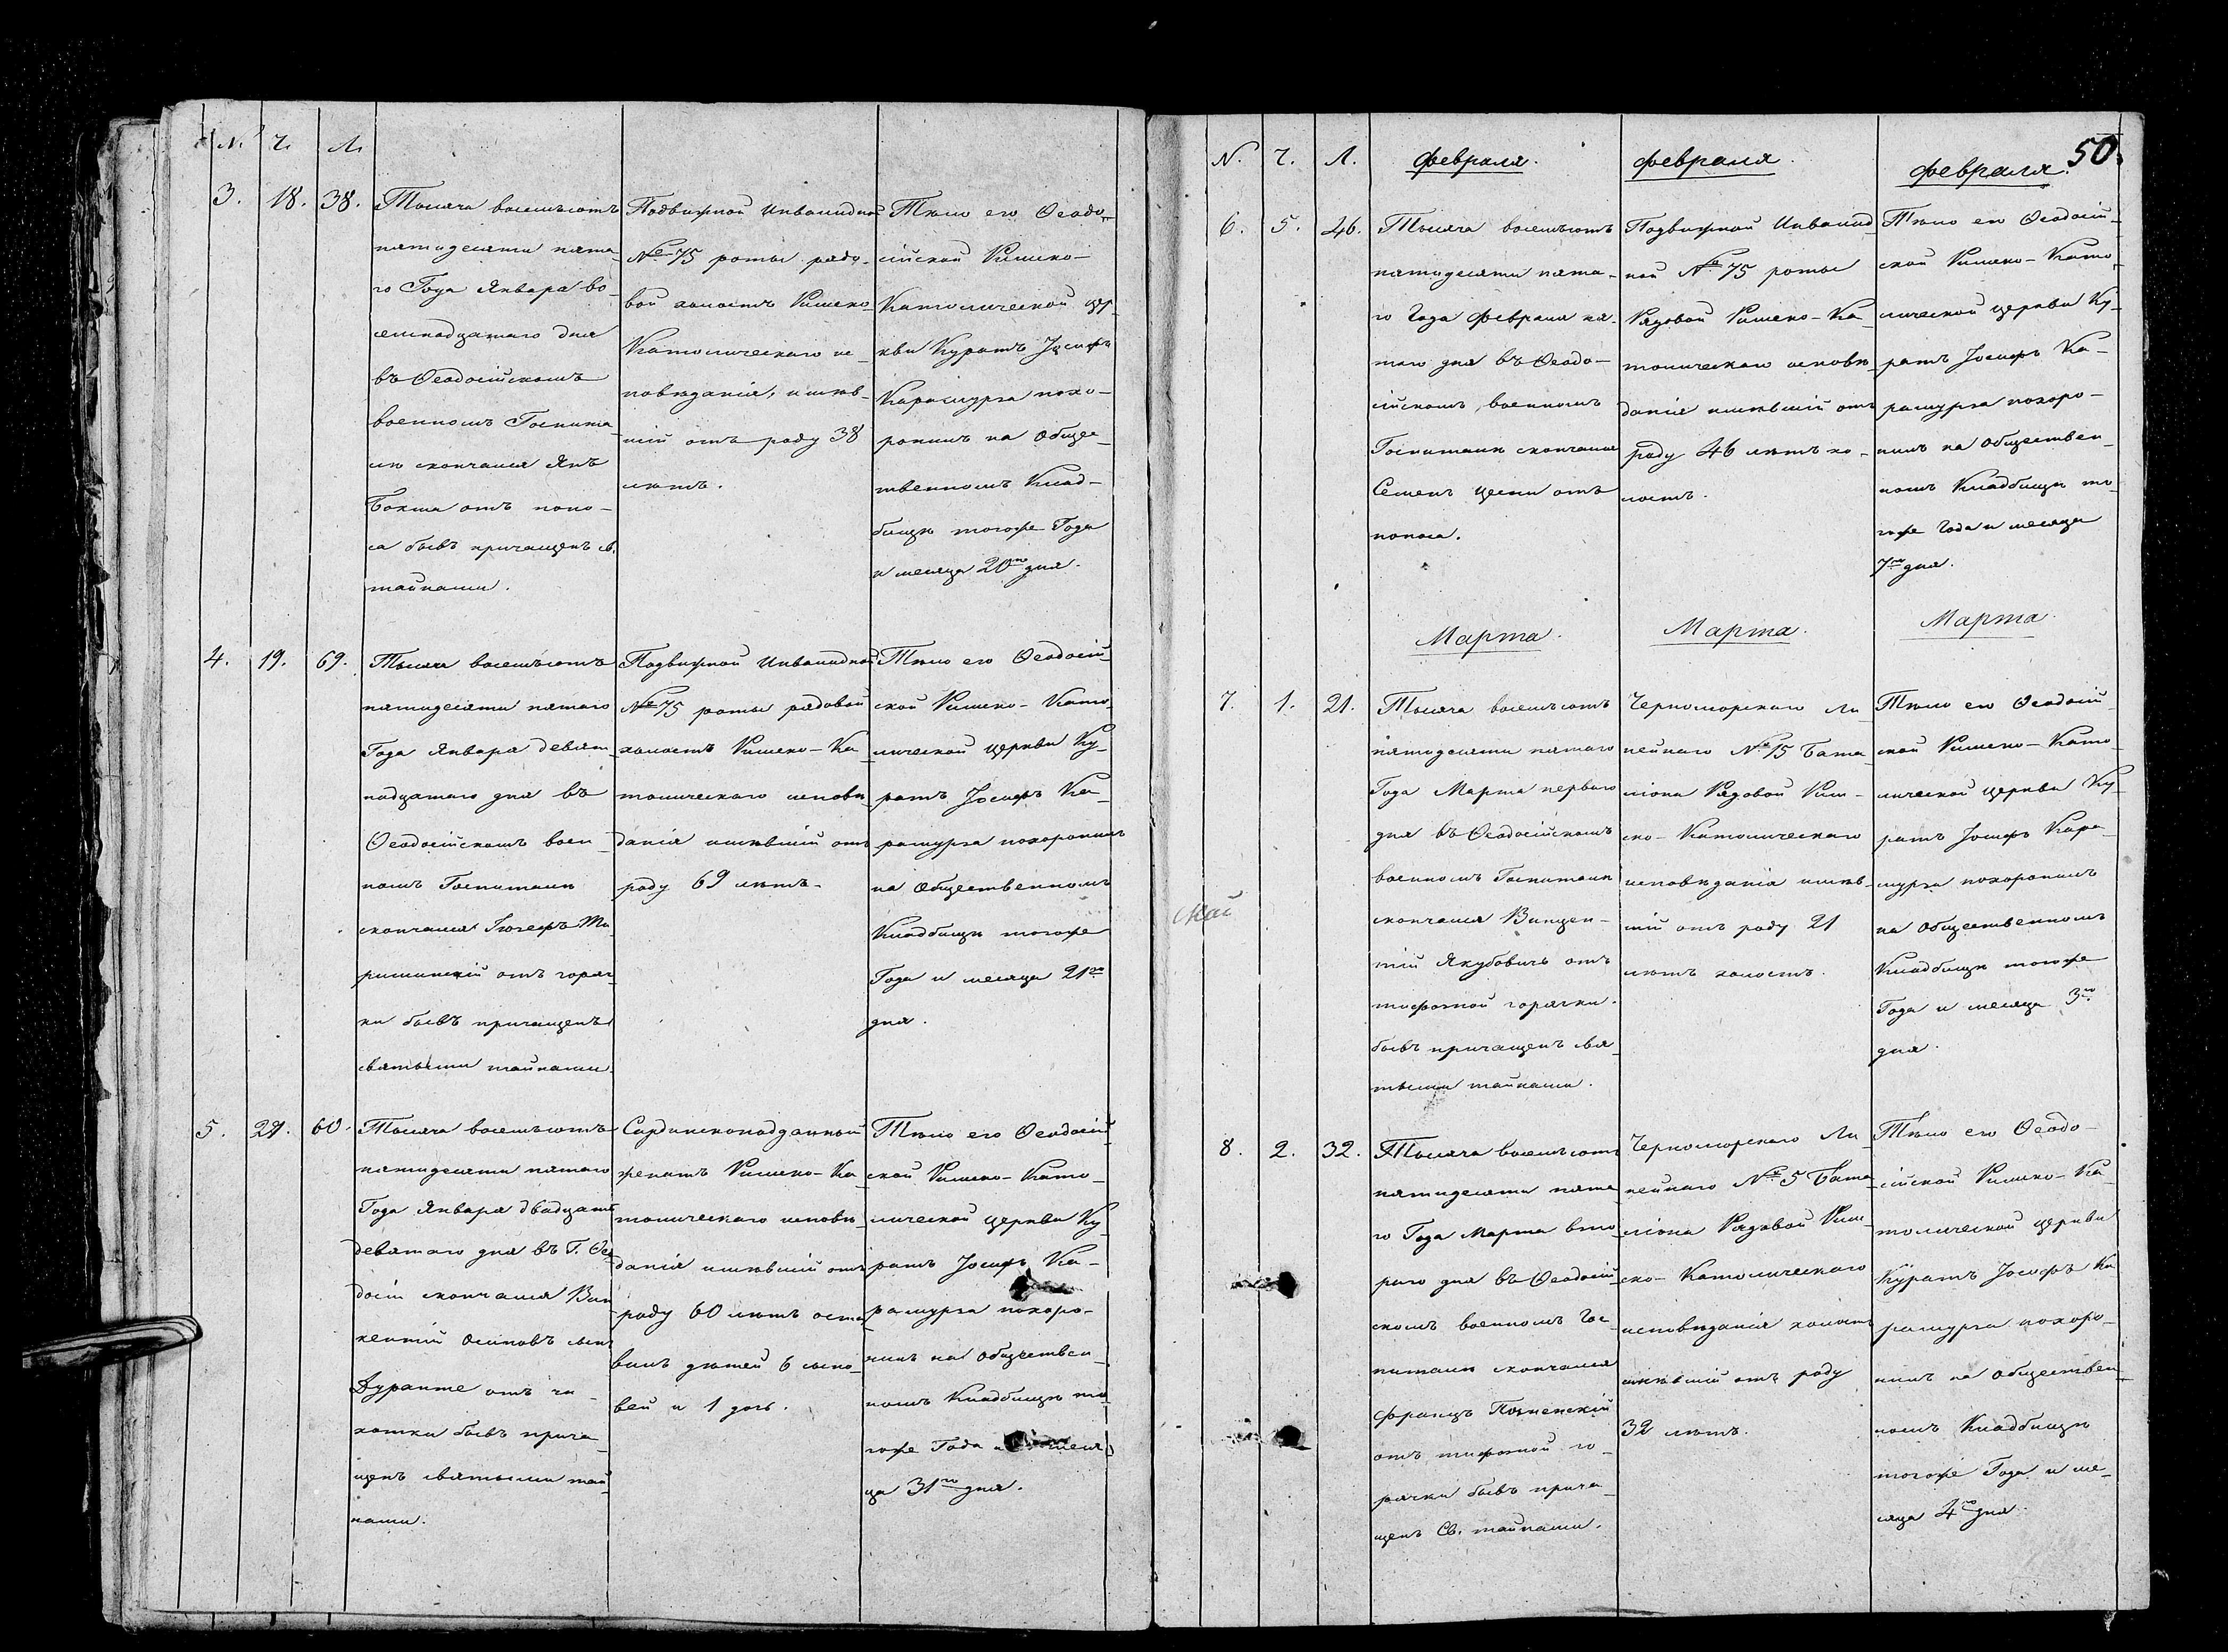 № Ч. Л.
3. 18. 38.
Тысяча восемьсотъ
пятидесяти пята-
го Года Января во-
семнадцатаго дня
въ Ѳеодосійскомъ
военномъ Госпита-
лѣ скончался Янъ
Бокша отъ поно-
са бывъ причащенъ св.
тайнами.
Подвижной Инвалидной
№ 75 роты рядо-
вой холостъ Римско-
Католическаго ис-
повѣданія, имѣв-
шій отъ роду 38
лѣтъ.
Тѣло его Ѳеодо-
сійской Римско-
Католической цер-
кви Куратъ Іосифъ
Карашурга похо-
ронилъ на Общес-
твенномъ Клад-
бищѣ тогоже Года
и месяца 20го дня.
4. 19. 69.
Тысяча восемьсотъ
пятидесяти пятаго
Года Января девят-
надцатаго дня въ
Ѳеодосійскомъ воен-
номъ Госпиталѣ
скончался Іозефъ
отъ горяч-
ки бывъ причащенъ
святыми тайнами.
Подвижной Инвалидной
№ 75 роты рядовой
холостъ Римско-Ка-
толическаго исповѣ-
данія имѣвшій отъ
роду 69 лѣтъ.
Тѣло его Ѳеодосій-
ской Римско-Като-
лической церкви Ку-
ратъ Іосифъ Ка-
рашурга похоронилъ
на Общественномъ
Кладбищѣ тогоже
Года и месяца 21го
дня.
5. 29. 60.
Тысяча восемьсотъ
пятидесяти пятаго
Года Января двадцать
девятаго дня въ Г. Ѳео-
досіи скончался Вин-
кентій Осиповъ сынъ
Дуранте отъ ча-
хотки бывъ прича-
щенъ святыми тай-
нами.
Сардинскоподданный
женатъ Римско-Ка-
толическаго исповѣ-
данія имѣвшій отъ
роду 60 лѣтъ оста-
вилъ дѣтей 6 сыно-
вей и 1 дочь.
Тѣло его Ѳеодосій-
ской Римско-Като-
лической церкви Ку-
ратъ Іосифъ Ка-
рашурга похоро-
нилъ на Обществен-
номъ Кладбищѣ то-
гоже Года и меся-
ца 31го дня.
50.
N. Ч. Л.
Февраля.
Февраля.
Февраля.
6. 5. 46.
Тысяча восемьсотъ
пятидесяти пята-
го Года Февраля пя-
таго дня въ Ѳеодо-
сійскомъ военномъ
Госпиталѣ скончался
Семенъ отъ
поноса.
Подвижной Инвалид-
ной № 75 роты
Рядовой Римско-Ка-
толическаго исповѣ-
данія имѣвшій отъ
роду 46 лѣтъ хо-
лостъ.
Тѣло его Ѳеодосій-
ской Римско-Като-
лической церкви Ку-
ратъ Іосифъ Ка-
рашурга похоро-
нилъ на Обществен-
номъ Кладбищѣ то-
гоже Года и месяца
7го дня.
Марта.
Марта.
Марта.
7. 1. 21.
Тысяча восемьсотъ
пятидесяти пятаго
Года Марта перваго
дня въ Ѳеодосійскомъ
военномъ Госпиталѣ
скончался Винцен-
тій Якубовичъ отъ
тифозной горячки.
бывъ причащенъ свя-
тыми тайнами.
Черноморскаго Ли-
нейнаго № 15 Бата-
ліона Рядовой Рим-
ско-Католическаго
исповѣданія имѣв-
шій отъ роду 21
лѣтъ холостъ.
Тѣло его Ѳеодосій-
ской Римско-Като-
лической церкви Ку-
ратъ Іосифъ Кара-
шурга похоронилъ
на Общественномъ
Кладбищѣ тогоже
Года и месяца 3го
дня.
8. 2. 32.
Тысяча восемьсотъ
пятидесяти пята-
го Года Марта вто-
раго дня въ Ѳеодосій-
скомъ военномъ Гос-
питалѣ скончался
Францъ
отъ тифозной го-
рячки бывъ прича-
щенъ Св. тайнами.
Черноморскаго Ли-
нейнаго № 5 Бата-
ліона Рядовой Рим-
ско-Католическаго
исповѣданія холостъ
имѣвшій отъ роду
32 лѣтъ.
Тѣло его Ѳеодо-
сійской Римско-Ка-
толической церкви
Куратъ Іосифъ Ка-
рашурга похоро-
нилъ на Обществен-
номъ Кладбищѣ
тогоже Года и ме-
сяца 4го дня.